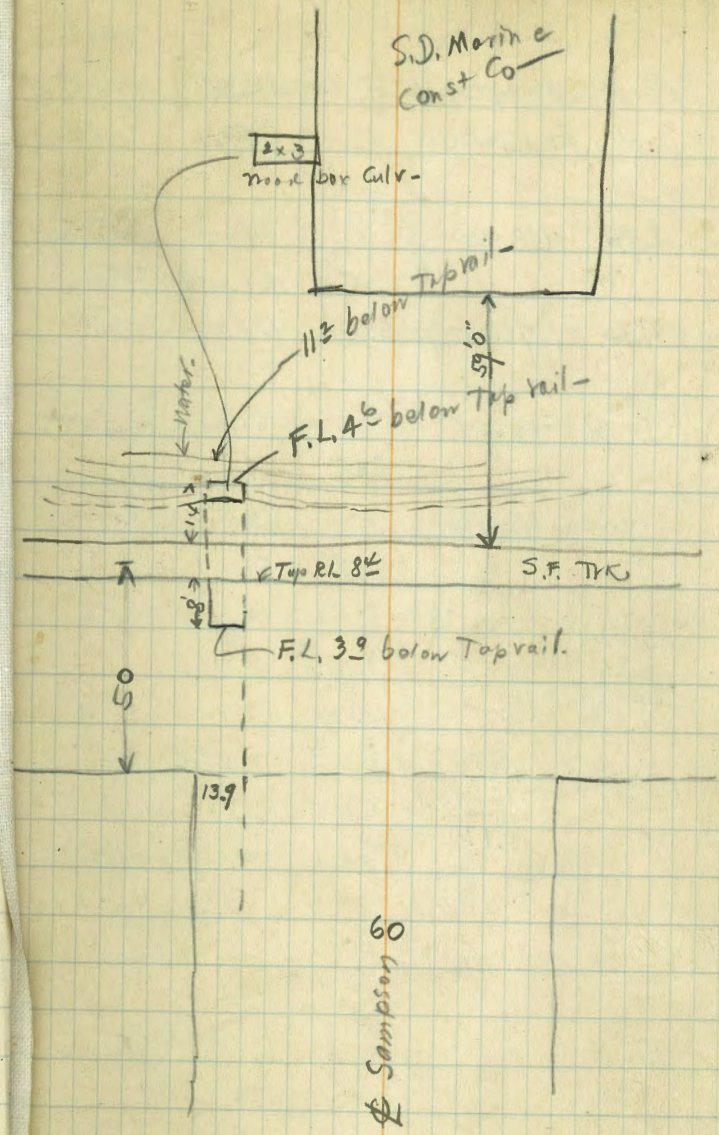 S.D. Marine
Const Co
2x3
wood box Culv-
11² below Top rail-
59'0"
← Water.
F.L. 4⁶ below Top rail-
14
Top Rl. 8⁴
S.F. Trk
8'
F.L. 3⁹ below Top rail.
50
13.9
60
℄ Sampson